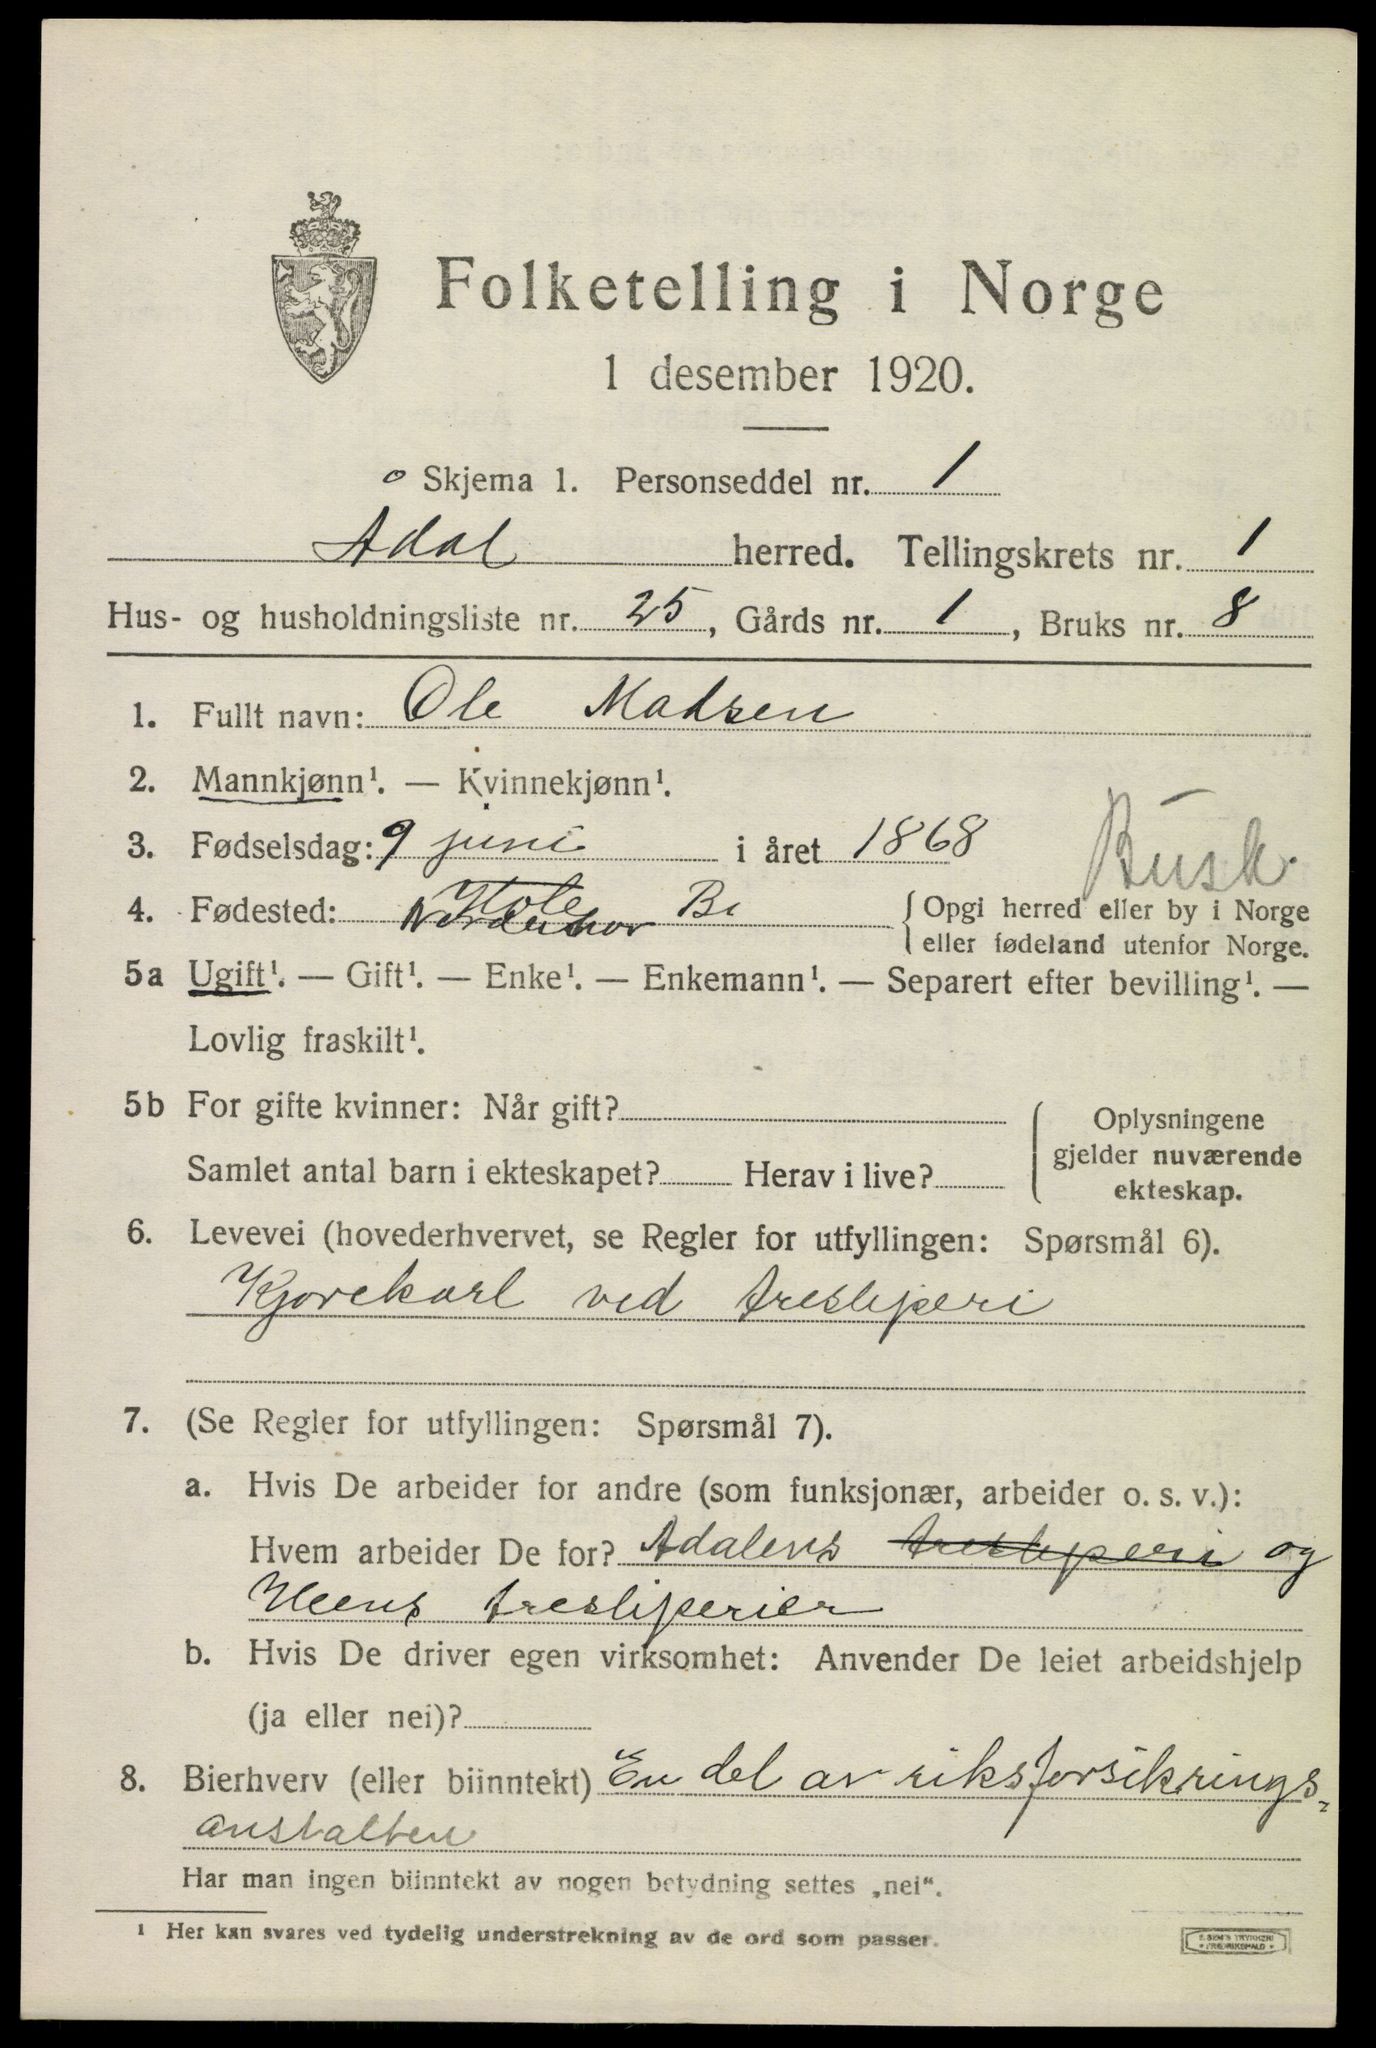 Folketelling i Norge
1 desember 1920.
o Skjema 1. Personseddel nr. 1
Adal herred. Tellingskrets nr. 1
Hus- og husholdningsliste nr. 25, Gårds nr. 1, Bruks nr. 8
1. Fullt navn: Ole Madsen
2. Mannkjønn¹. — Kvinnekjønn¹.
3. Fødselsdag: 9 juni i året 1868
Busk.
4. Fødested: Hole Norderhov Bu {Opgi herred eller by i Norge
eller fødeland utenfor Norge.
5a Ugift¹. — Gift¹. — Enke¹. — Enkemann¹. — Separert efter bevilling¹. —
Lovlig fraskilt¹.
5b For gifte kvinner: Når gift?
Samlet antal barn i ekteskapet? Herav i live?
Oplysningene
gjelder nuværende
ekteskap.
6. Levevei (hovederhvervet, se Regler for utfyllingen: Spørsmål 6).
Kjørekarl ved tresliperi
7. (Se Regler for utfyllingen: Spørsmål 7).
a. Hvis De arbeider for andre (som funksjonær, arbeider o. s. v.):
Hvem arbeider De for? Adalens tresliperi og
Heens tresliperier
b. Hvis De driver egen virksomhet: Anvender De leiet arbeidshjelp
(ja eller nei)?
8. Bierhverv (eller biinntekt) En del av riksforsikrings-
anstalten
Har man ingen biinntekt av nogen betydning settes „nei“.
¹ Her kan svares ved tydelig understrekning av de ord som passer.